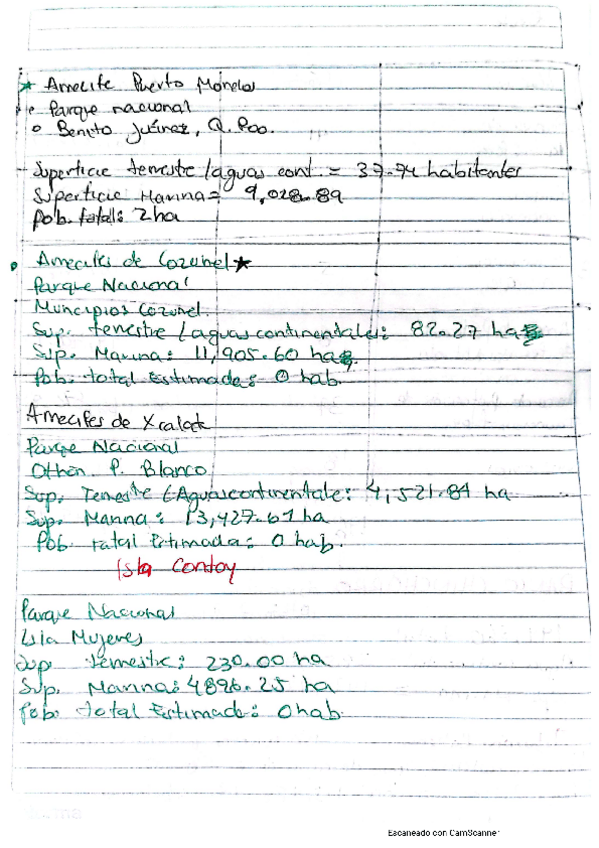 ★ Arrecife Puerto Morelos
• Parque nacional
○ Benito Juárez, Q. Roo.
Superficie terrestre /aguas cont. = 37.74 habitantes
Superficie Marina = 9,028.89
Pob. total: 2 ha
• Arrecifes de Cozumel ★
Parque Nacional
Municipios Cozumel.
Sup. terrestre /aguas continentales: 82.27 ha
Sup. Marina: 11,905.60 ha
Pob. total Estimada: 0 hab.
Arrecifes de Xcalak
Parque Nacional
Othon P. Blanco
Sup. Terrestre /Aguas continentale: 4,521.84 ha
Sup. Marina: 13,427.61 ha
Pob. total Estimada: 0 hab.
Isla Contoy
Parque Nacional
Isla Mujeres
Sup. terrestre: 230.00 ha
Sup. Marina: 4896.25 ha
Pob. total Estimada: 0 hab
Escaneado con CamScanner